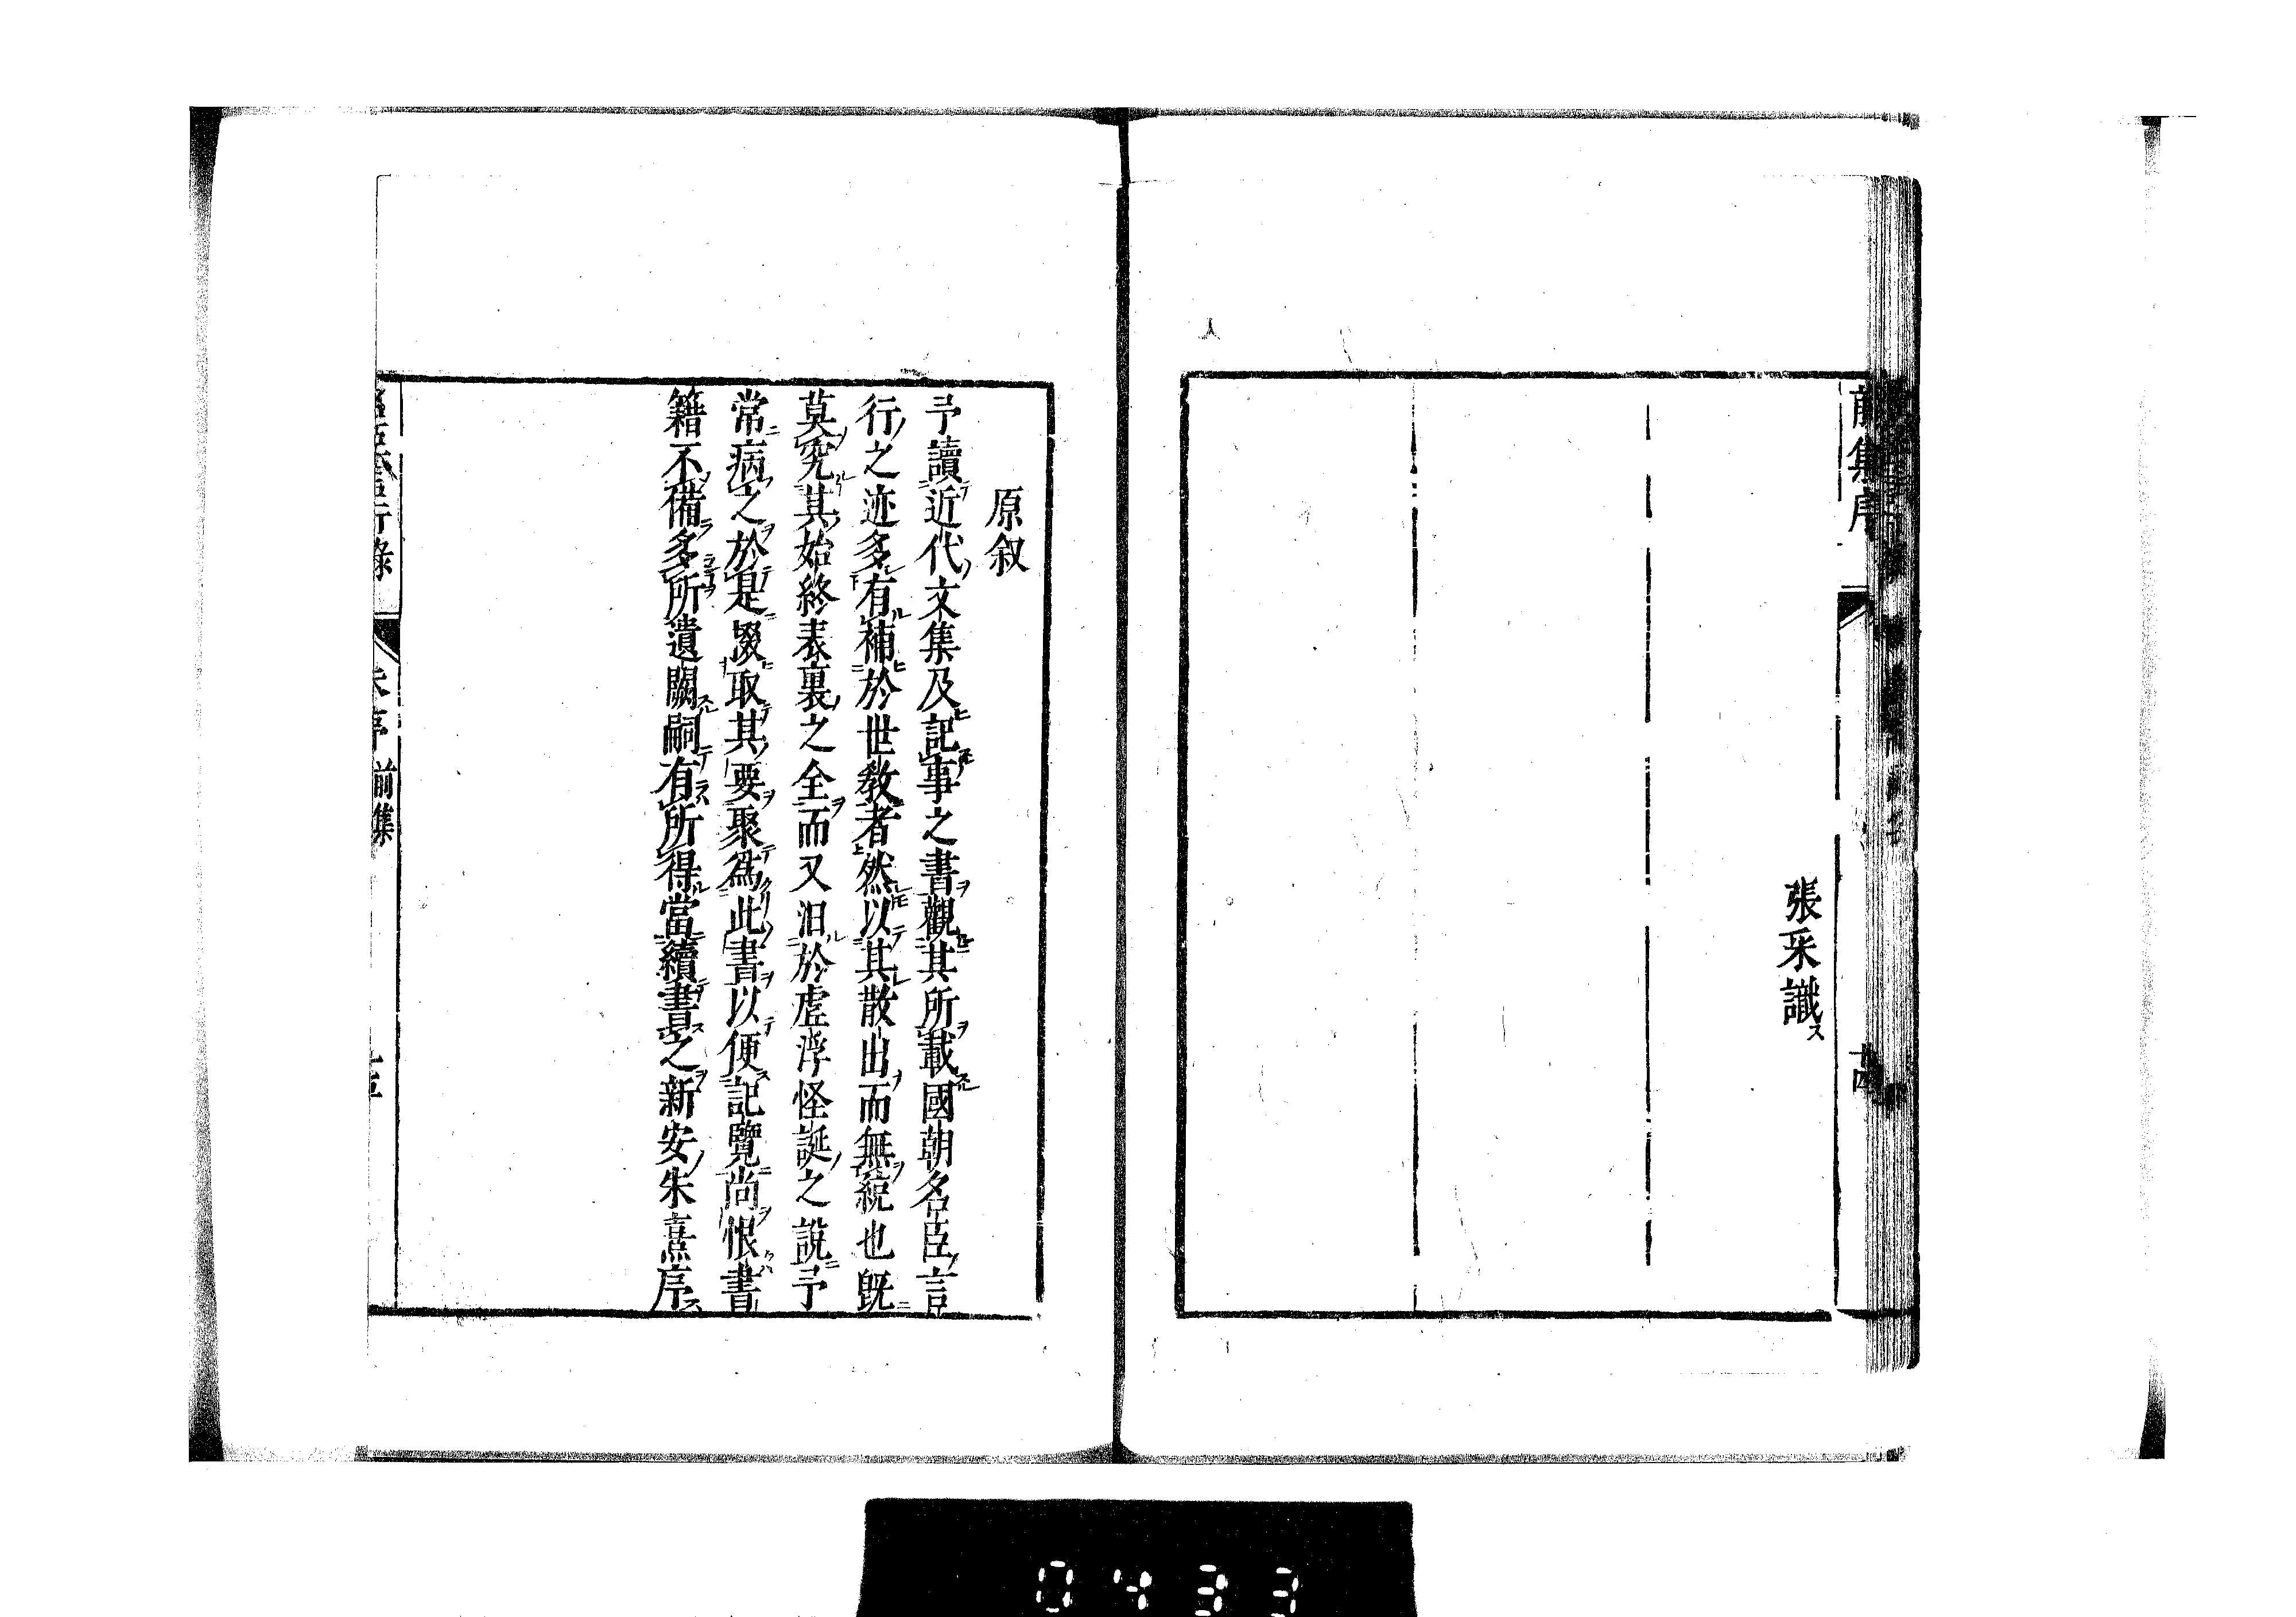 前集序
廿四
張采識ス
原叙
予讀近代文集及記事之書觀其所載國朝名臣言
行之迹多有補於世教者然以其散出而無統也旣
莫究其始終表裏之全而又汩於虛浮怪誕之說予
常病之於是掇取其要聚爲此書以便記覽尚恨書
籍不備多所遺闕嗣有所得當續書之新安朱熹序
朱序 前集
0433